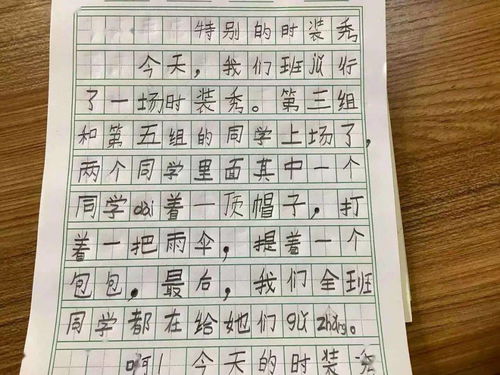 特别的时装秀
今天，我们班旅行
了一场时装秀。第三组
和第五组的同学上场了，
两个同学里面其中一个
同学dài着一顶帽子，打
着一把雨伞，提着一个
包包，最后，我们全班
同学都在给她们gǔ zhǎng。
啊！今天的时装秀